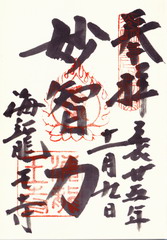 奉拝
平成廿五年
十一月九日
妙智力
海龍王寺